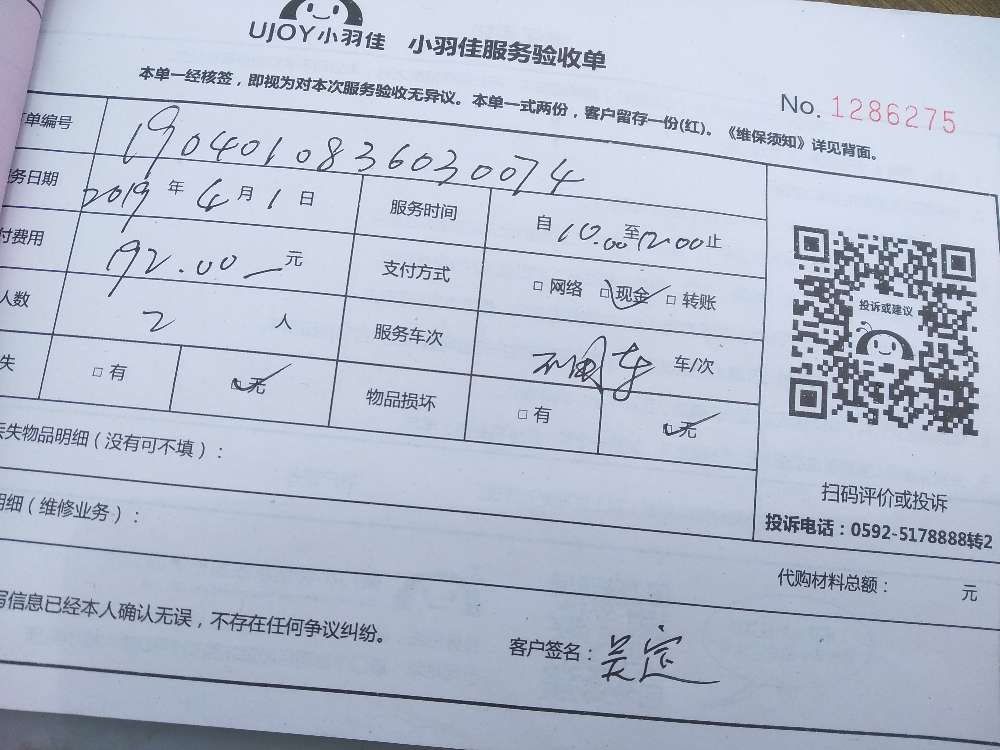 UJOY小羽佳 小羽佳服务验收单
本单一经核签，即视为对本次服务验收无异议。本单一式两份，客户留存一份(红)。《维保须知》详见背面。
No. 1286275
单编号 1904010836030074
务日期 2019 年 4 月 1 日 服务时间 自 10.00 至 12.00 止
付费用 192.00 元 支付方式 □ 网络 □ 现金 □ 转账
人数 2 人 服务车次 车/次
失 □ 有 □ 无 物品损坏 □ 有 □ 无
投诉或建议
扫码评价或投诉
投诉电话：0592-5178888转2
失物品明细（没有可不填）：
明细（维修业务）：
代购材料总额： 元
写信息已经本人确认无误，不存在任何争议纠纷。
客户签名：吴定